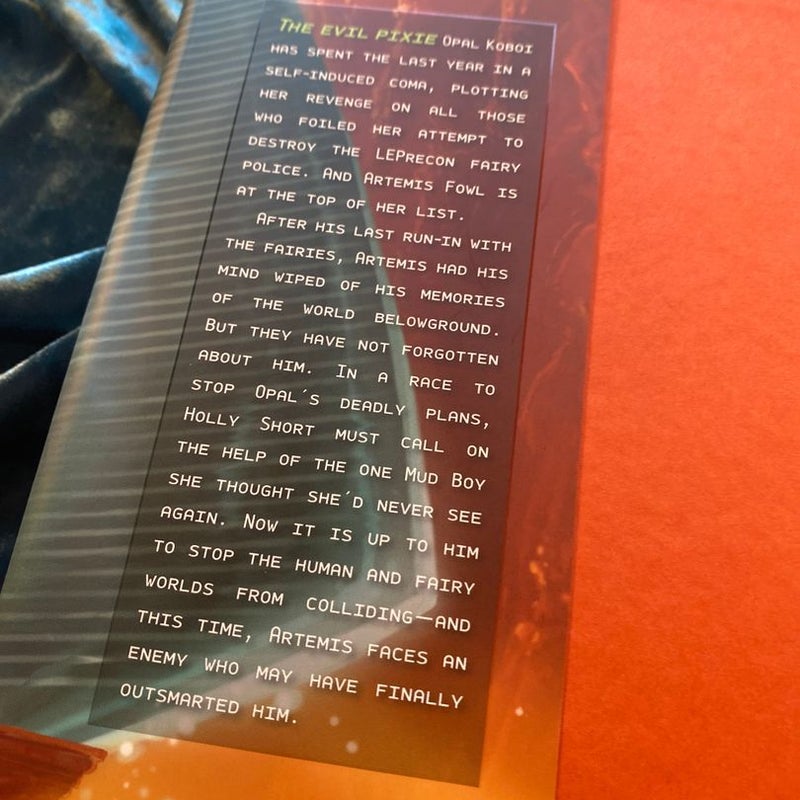 THE EVIL PIXIE OPAL KOBOI
HAS SPENT THE LAST YEAR IN A
SELF-INDUCED COMA, PLOTTING
HER REVENGE ON ALL THOSE
WHO FOILED HER ATTEMPT TO
DESTROY THE LEPRECON FAIRY
POLICE. AND ARTEMIS FOWL IS
AT THE TOP OF HER LIST.
AFTER HIS LAST RUN-IN WITH
THE FAIRIES, ARTEMIS HAD HIS
MIND WIPED OF HIS MEMORIES
OF THE WORLD BELOWGROUND.
BUT THEY HAVE NOT FORGOTTEN
ABOUT HIM. IN A RACE TO
STOP OPAL´S DEADLY PLANS,
HOLLY SHORT MUST CALL ON
THE HELP OF THE ONE MUD BOY
SHE THOUGHT SHE´D NEVER SEE
AGAIN. NOW IT IS UP TO HIM
TO STOP THE HUMAN AND FAIRY
WORLDS FROM COLLIDING—AND
THIS TIME, ARTEMIS FACES AN
ENEMY WHO MAY HAVE FINALLY
OUTSMARTED HIM.